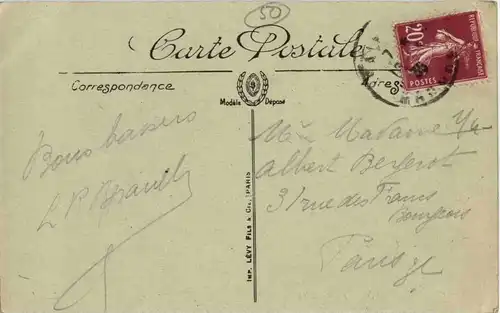 50
Carte Postale
Correspondance
Adresse
Modèle Déposé
RÉPUBLIQUE FRANÇAISE
20c
POSTES
Bons baisers
L P
Madame
Albert Bergerot
31 rue des Francs
Bourgeois
Paris
IMP. LÉVY FILS & Cie, PARIS